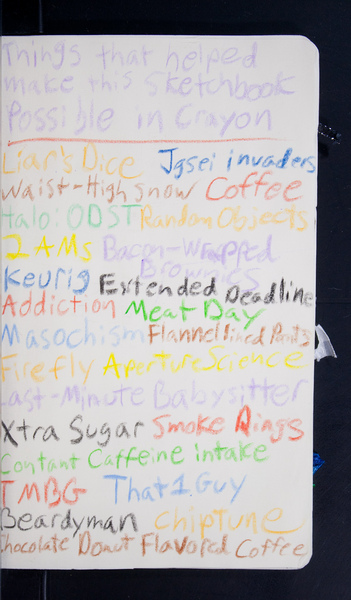 Things that helped
make this Sketchbook
Possible in Crayon
Liar's Dice Jgsei invaders
Waist-High snow Coffee
Halo: ODST Random Objects
2 AMs Bacon-Wrapped
Brownies
Keurig Extended Deadline
Addiction Meat Day
Masochism Flannel lined Pants
Firefly Aperture Science
Last-Minute Babysitter
Xtra Sugar Smoke Rings
Contant Caffeine intake
TMBG That 1 Guy
Beardyman Chiptune
Chocolate Donut Flavored Coffee